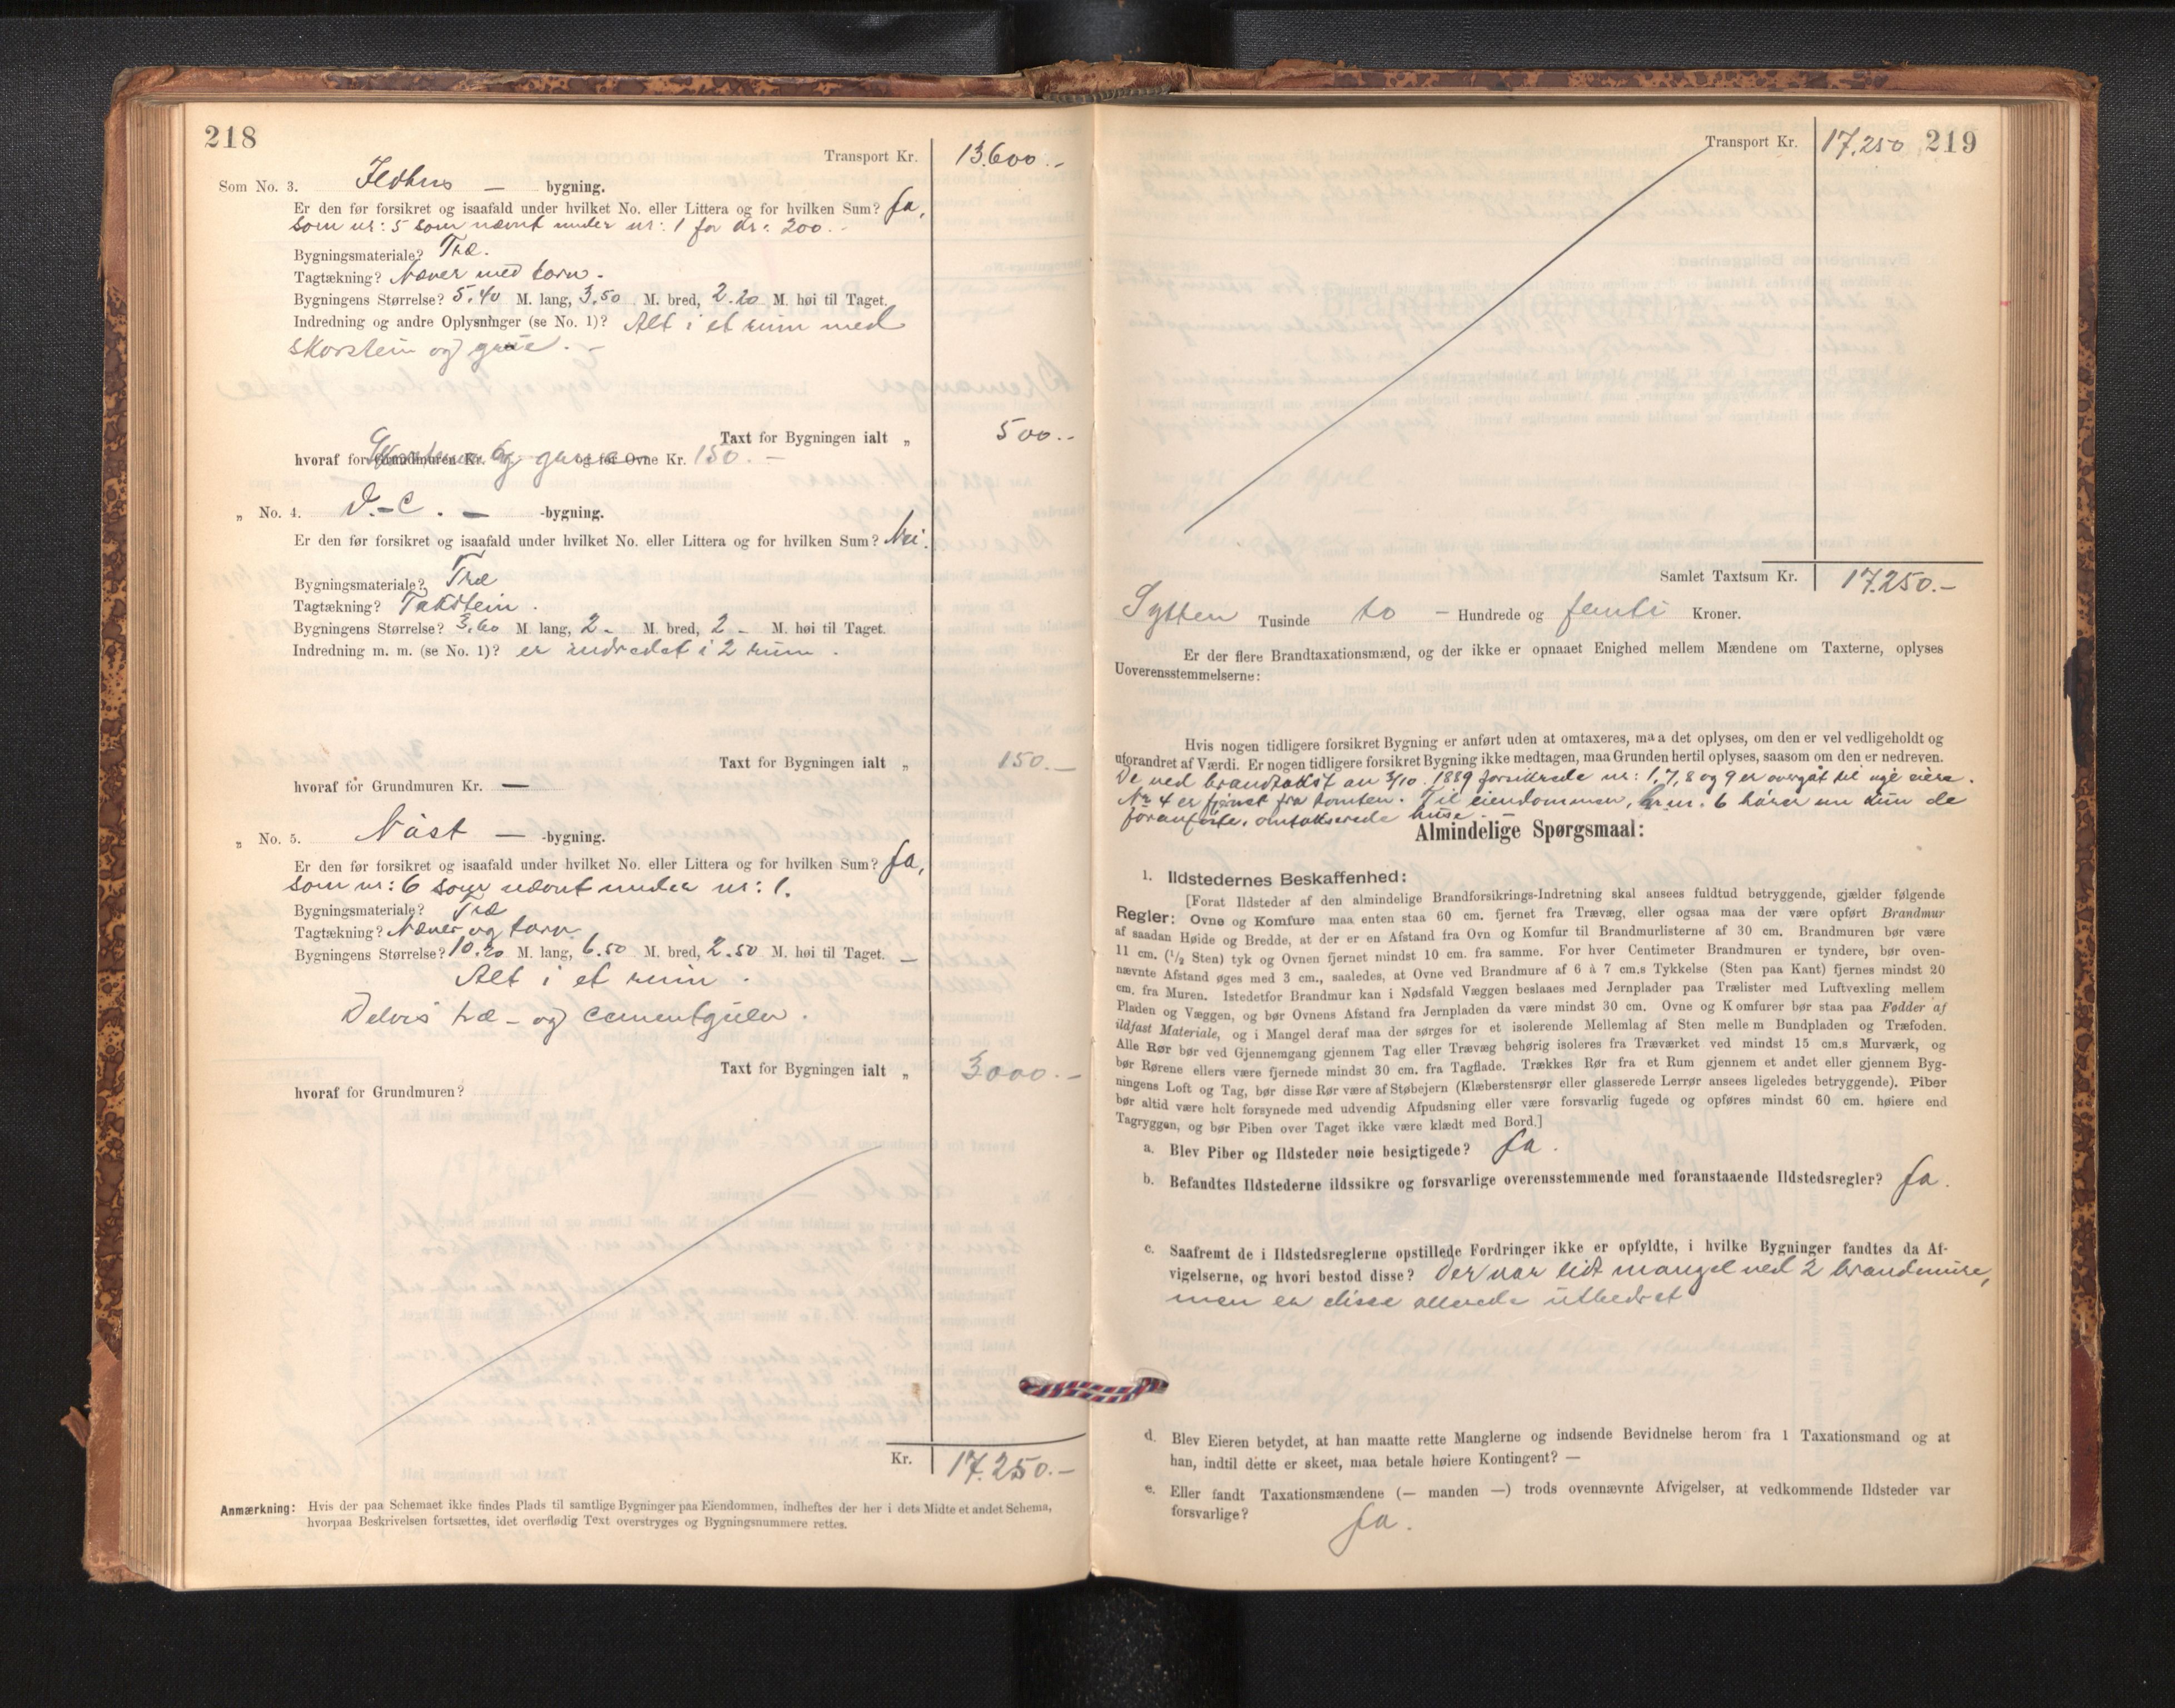 218
Transport Kr. 13.600.-
Som No. 3. Ildhus — bygning.
Er den før forsikret og isaafald under hvilket No. eller Littera og for hvilken Sum? Ja,
som nr: 5 som nævnt under nr: 1 for kr: 200.-
Bygningsmateriale? Træ.
Tagtækning? Næver med torv.
Bygningens Størrelse? 5.40 M. lang, 3.50 M. bred, 2.20 M. høi til Taget.
Indredning og andre Oplysninger (se No. 1)? Alt i et rum med
skorstein og grue. -
Taxt for Bygningen ialt „ 500.-
hvoraf for Grundmuren Kr. og for Ovne Kr. 150.-
„ No. 4. V.-C. — -bygning.
Er den før forsikret og isaafald under hvilket No. eller Littera og for hvilken Sum? Nei.
Bygningsmateriale? Træ
Tagtækning? Takstein.
Bygningens Størrelse? 3.60 M lang, 2 - M. bred, 2 - M. høi til Taget.
Indredning m. m. (se No. 1)? er indredet i 2 rum.
Taxt for Bygningen ialt „ 150.-
hvoraf for Grundmuren Kr. —
„ No. 5. Nåst — -bygning.
Er den før forsikret og isaafald under hvilket No. eller Littera og for hvilken Sum? Ja,
som nr: 6 som nævnt under nr: 1.
Bygningsmateriale? Træ
Tagtækning? Næver og torv.
Bygningens Størrelse? 10.20 M. lang, 6.50 M. bred, 2.50 M. høi til Taget. —
Alt i et rum.
Delvis træ- og cementgulv.
Taxt for Bygningen ialt „ 3000.-
hvoraf for Grundmuren?
Kr. 17.250.-
Anmærkning: Hvis der paa Schemaet ikke findes Plads til samtlige Bygninger paa Eiendommen, indheftes der her i dets Midte et andet Schema,
hvorpaa Beskrivelsen fortsættes, idet overflødig Text overstryges og Bygningsnummere rettes.
Transport Kr. 17.250 219
Samlet Taxtsum Kr. 17.250.-
Sytten Tusinde to - Hundrede og femti Kroner.
Er der flere Brandtaxationsmænd, og der ikke er opnaaet Enighed mellem Mændene om Taxterne, oplyses
Uoverensstemmelserne:
Hvis nogen tidligere forsikret Bygning er anført uden at omtaxeres, maa det oplyses, om den er vel vedligeholdt og
uforandret af Værdi. Er nogen tidligere forsikret Bygning ikke medtagen, maa Grunden hertil oplyses, saasom om den er nedreven.
De ved brandtakst av 3/10. 1889 forsikrede nr: 1, 7, 8 og 9 er overgåt til nye eiere.
Nr 4 er fjernet fra tomten. Til eiendommen, br. nr. 6 hører nu kun de
foranførte, omtakserede huse. -
Almindelige Spørgsmaal:
1. Ildstedernes Beskaffenhed:
[Forat Ildsteder af den almindelige Brandforsikrings-Indretning skal ansees fuldtud betryggende, gjælder følgende
Regler: Ovne og Komfure maa enten staa 60 cm. fjernet fra Trævæg, eller ogsaa maa der være opført Brandmur
af saadan Høide og Bredde, at der er en Afstand fra Ovn og Komfur til Brandmurlisterne af 30 cm. Brandmuren bør være
11 cm. (1/2 Sten) tyk og Ovnen fjernet mindst 10 cm. fra samme. For hver Centimeter Brandmuren er tyndere, bør oven-
nævnte Afstand øges med 3 cm., saaledes, at Ovne ved Brandmure af 6 à 7 cm.s Tykkelse (Sten paa Kant) fjernes mindst 20
cm. fra Muren. Istedetfor Brandmur kan i Nødsfald Væggen beslaaes med Jernplader paa Trælister med Luftvexling mellem
Pladen og Væggen, og bør Ovnens Afstand fra Jernpladen da være mindst 30 cm. Ovne og Komfurer bør staa paa Fødder af
ildfast Materiale, og i Mangel deraf maa der sørges for et isolerende Mellemlag af Sten mellem Bundpladen og Træfoden.
Alle Rør bør ved Gjennemgang gjennem Tag eller Trævæg behørig isoleres fra Træværket ved mindst 15 cm.s Murværk, og
bør Rørene ellers være fjernede mindst 30 cm. fra Tagflade. Trækkes Rør fra et Rum gjennem et andet eller gjennem Byg-
ningens Loft og Tag, bør disse Rør være af Støbejern (Klæberstensrør eller glasserede Lerrør ansees ligeledes betryggende). Piber
bør altid være helt forsynede med udvendig Afpudsning eller være forsvarlig fugede og opføres mindst 60 cm. høiere end
Tagryggen, og bør Piben over Taget ikke være klædt med Bord.]
a. Blev Piber og Ildsteder nøie besigtigede? Ja.
b. Befandtes Ildstederne ildssikre og forsvarlige overensstemmende med foranstaaende Ildstedsregler? Ja.
c. Saafremt de i Ildstedsreglerne opstillede Fordringer ikke er opfyldte, i hvilke Bygninger fandtes da Af-
vigelserne, og hvori bestod disse? Der var lidt mangel ved 2 brandmure,
men er disse allerede utbedret
d. Blev Eieren betydet, at han maatte rette Manglerne og indsende Bevidnelse herom fra 1 Taxationsmand og at
han, indtil dette er skeet, maa betale høiere Kontingent? —
e. Eller fandt Taxationsmændene (— manden —) trods ovennævnte Afvigelser, at vedkommende Ildsteder var
forsvarlige? Ja.